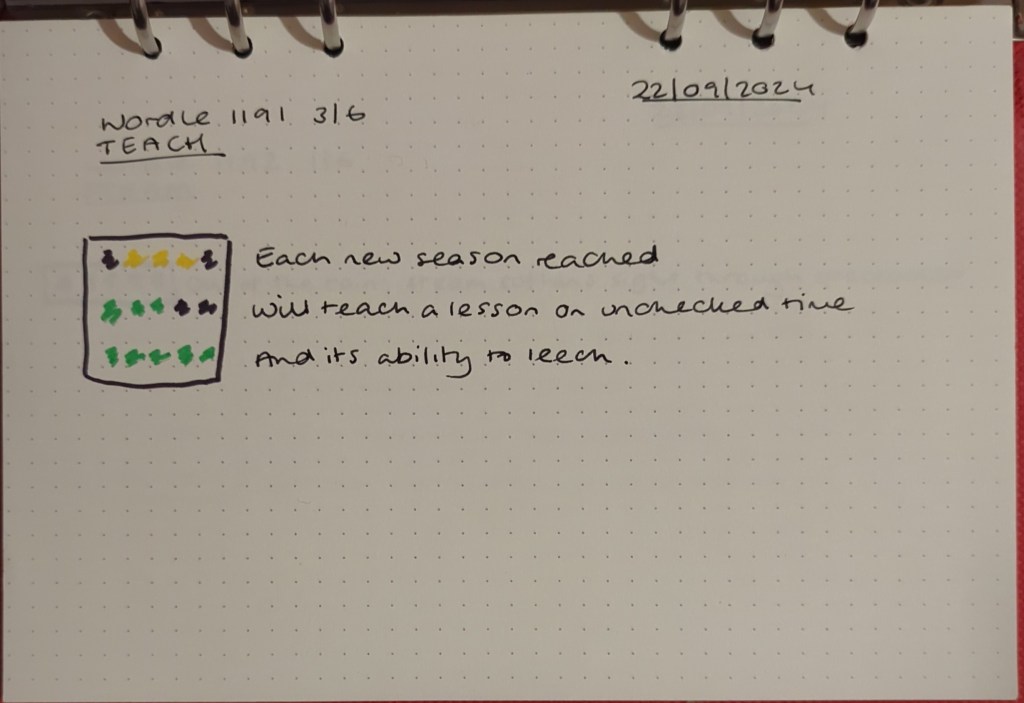 22/09/2024
Wordle 1191 3/6
TEACH
Each new season reached
will teach a lesson on unchecked time
And its ability to leech.